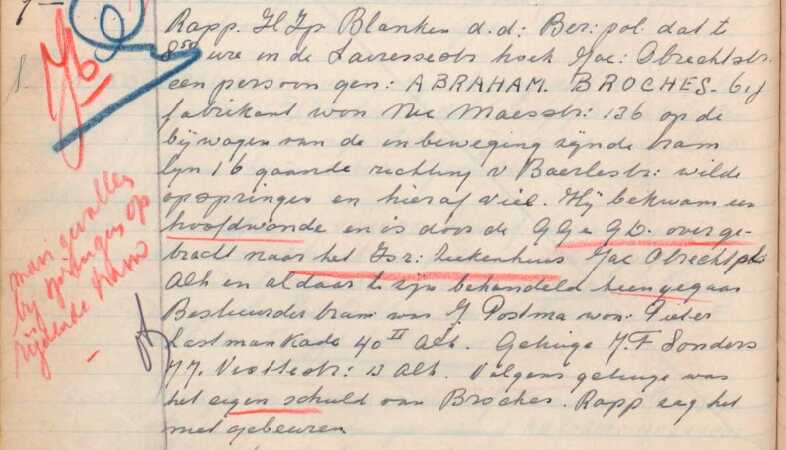 7 -
Rapp. H Jp Blanken d.d: Ber: pol: dat te
8 50 ure in de Lairessestr hoek Jac: Obrechtstr.
een persoon gen: ABRAHAM. BROCHES - 61 j
fabrikant won Nic Maesstr: 136 op de
bijwagen van de in beweging zijnde tram
lijn 16 gaande richting v Baerlestr: wilde
opspringen en hieraf viel. Hij bekwam een
hoofdwonde en is door de G G e G D. overge-
bracht naar het Isr: Ziekenhuis Jac Obrechtpl:
Alh en aldaar te zijn behandeld heengegaan
Bestuurder tram was J Postma won: Pieter
Lastmankade 40 II Alh. Getuige J.F Sonders
13 Alh. Volgens getuige was
het eigen schuld van Broches. Rapp zag het
niet gebeuren
man gevallen
bij springen op
rijdende tram
-